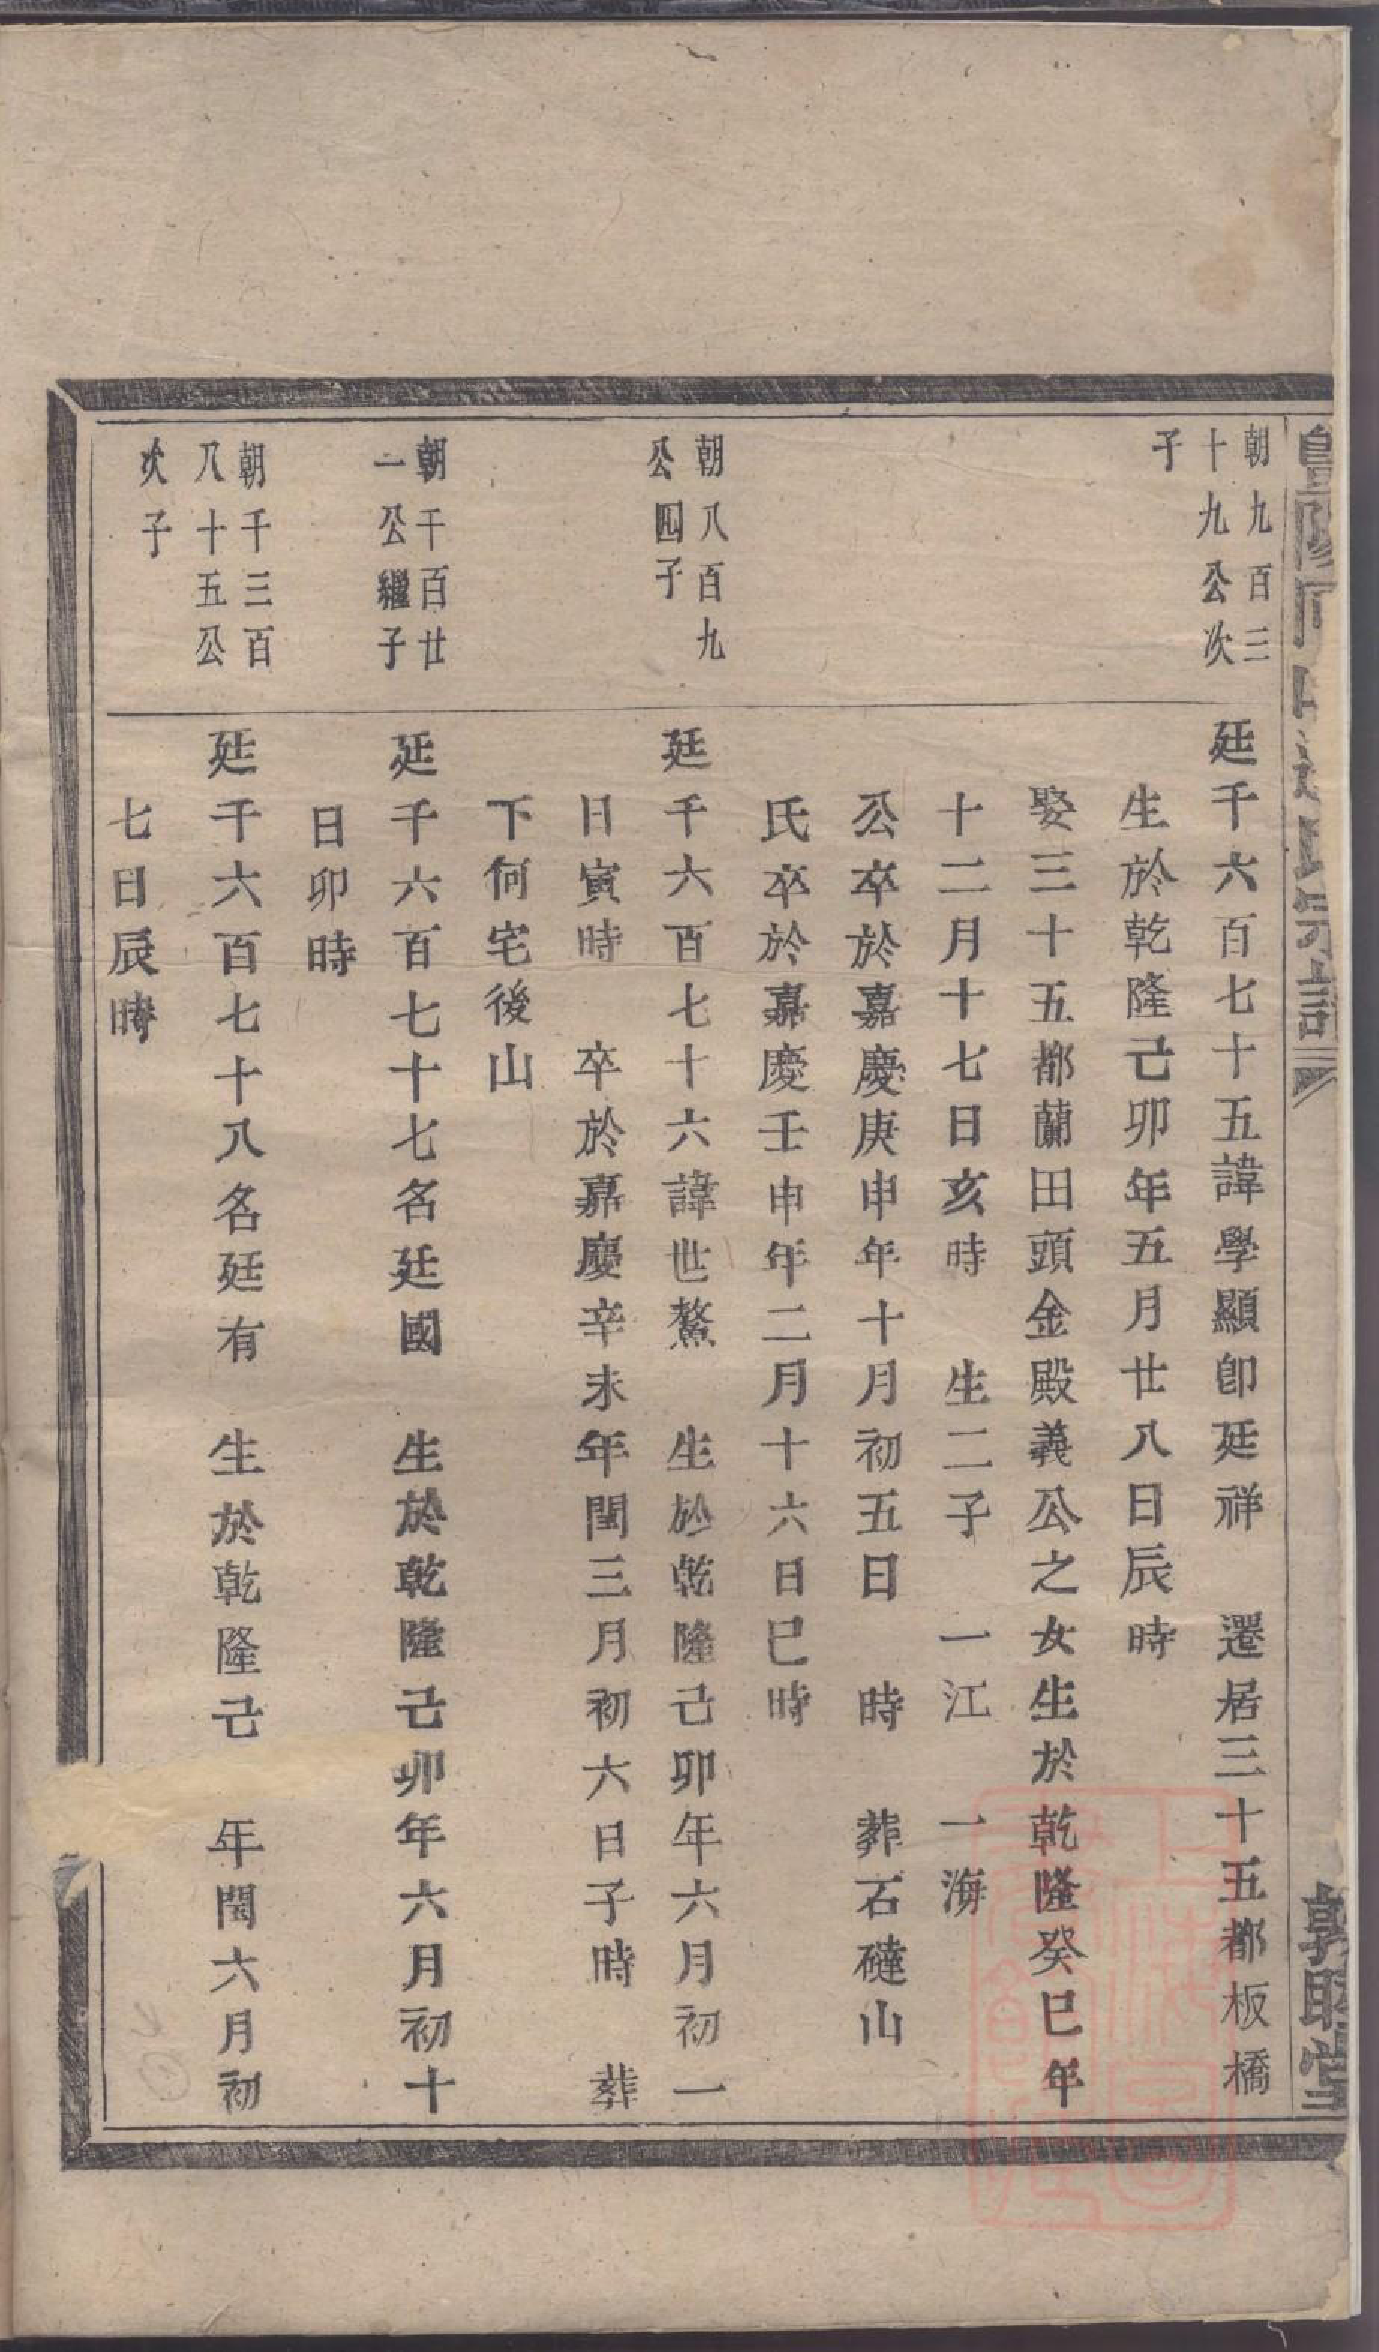 氏宗譜
敦睦堂
朝九百三
十九公次
子
廷千六百七十五諱學顯卽廷祥　遷居三十五都板橋
生於乾隆己卯年五月廿八日辰時
娶三十五都蘭田頭金殿義公之女生於乾隆癸巳年
十二月十七日亥時　生二子　一江　一海
公卒於嘉慶庚申年十月初五日　時　葬石磓山
氏卒於嘉慶壬申年二月十六日巳時
朝八百九
公四子
廷千六百七十六諱世鰲　生於乾隆己卯年六月初一
日寅時　卒於嘉慶辛未年閏三月初六日子時　葬
下何宅後山
朝千百廿
一公繼子
廷千六百七十七名廷國　生於乾隆己卯年六月初十
日卯時
朝千三百
八十五公
次子
廷千六百七十八名廷有　生於乾隆己　年閏六月初
七日辰時